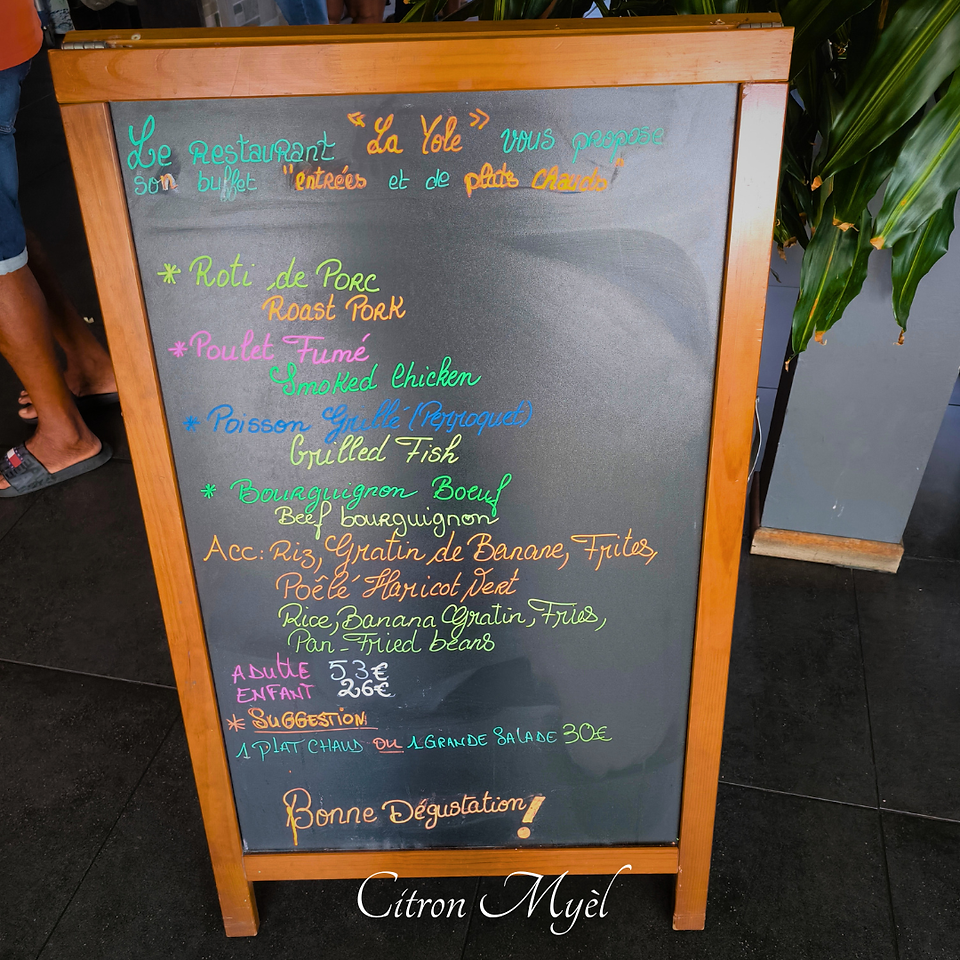 Le Restaurant "La Yole" vous propose
son buffet "entrées et de plats chauds"
* Roti de Porc
Roast Pork
* Poulet Fumé
Smoked Chicken
* Poisson Grillé (Perroquet)
Grilled Fish
* Bourguignon Boeuf
Beef bourguignon
Acc: Riz, Gratin de Banane, Frites,
Poêlé Haricot Vert
Rice, Banana Gratin, Fries,
Pan-Fried beans
ADULTE 53€
ENFANT 26€
* SUGGESTION
1 PLAT CHAUD OU 1 GRANDE SALADE 30€
Bonne Dégustation!
Citron Myèl